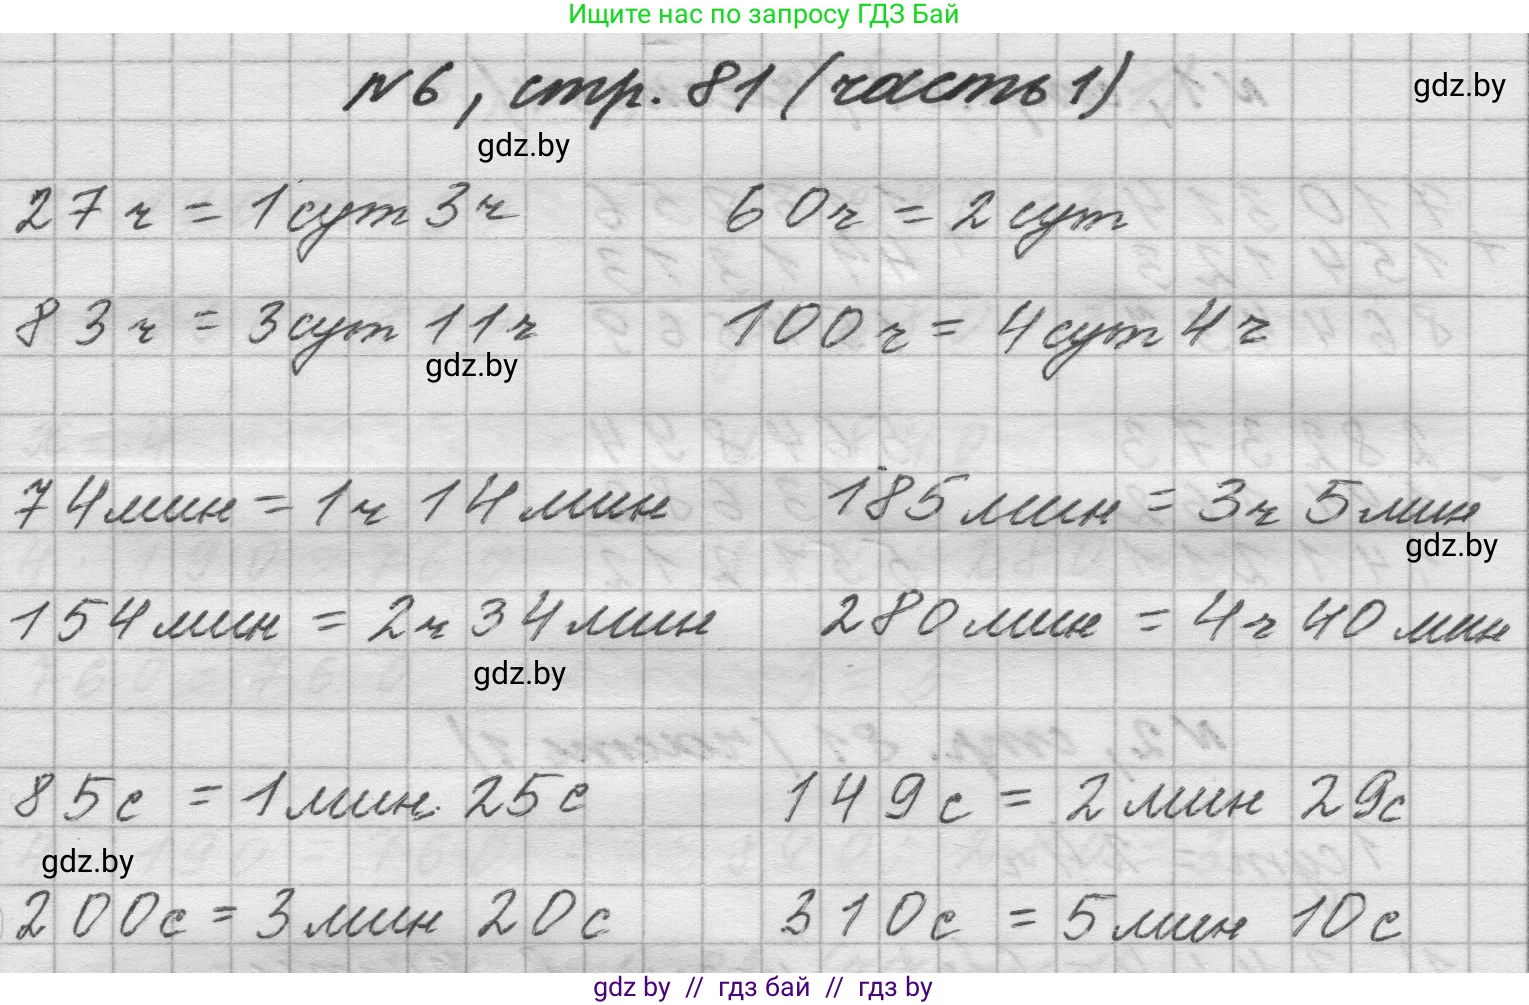 Ищите нас по запросу ГДЗ Бай
№6, стр. 81 (часть 1)
gdz.by
gdz.by
27 ч = 1 сут 3 ч 60 ч = 2 сут
83 ч = 3 сут 11 ч 100 ч = 4 сут 4 ч
gdz.by
74 мин = 1 ч 14 мин 185 мин = 3 ч 5 мин
gdz.by
154 мин = 2 ч 34 мин 280 мин = 4 ч 40 мин
gdz.by
85 с = 1 мин 25 с 149 с = 2 мин 29 с
gdz.by
200 с = 3 мин 20 с 310 с = 5 мин 10 с
gdz by // гдз бай // гдз by